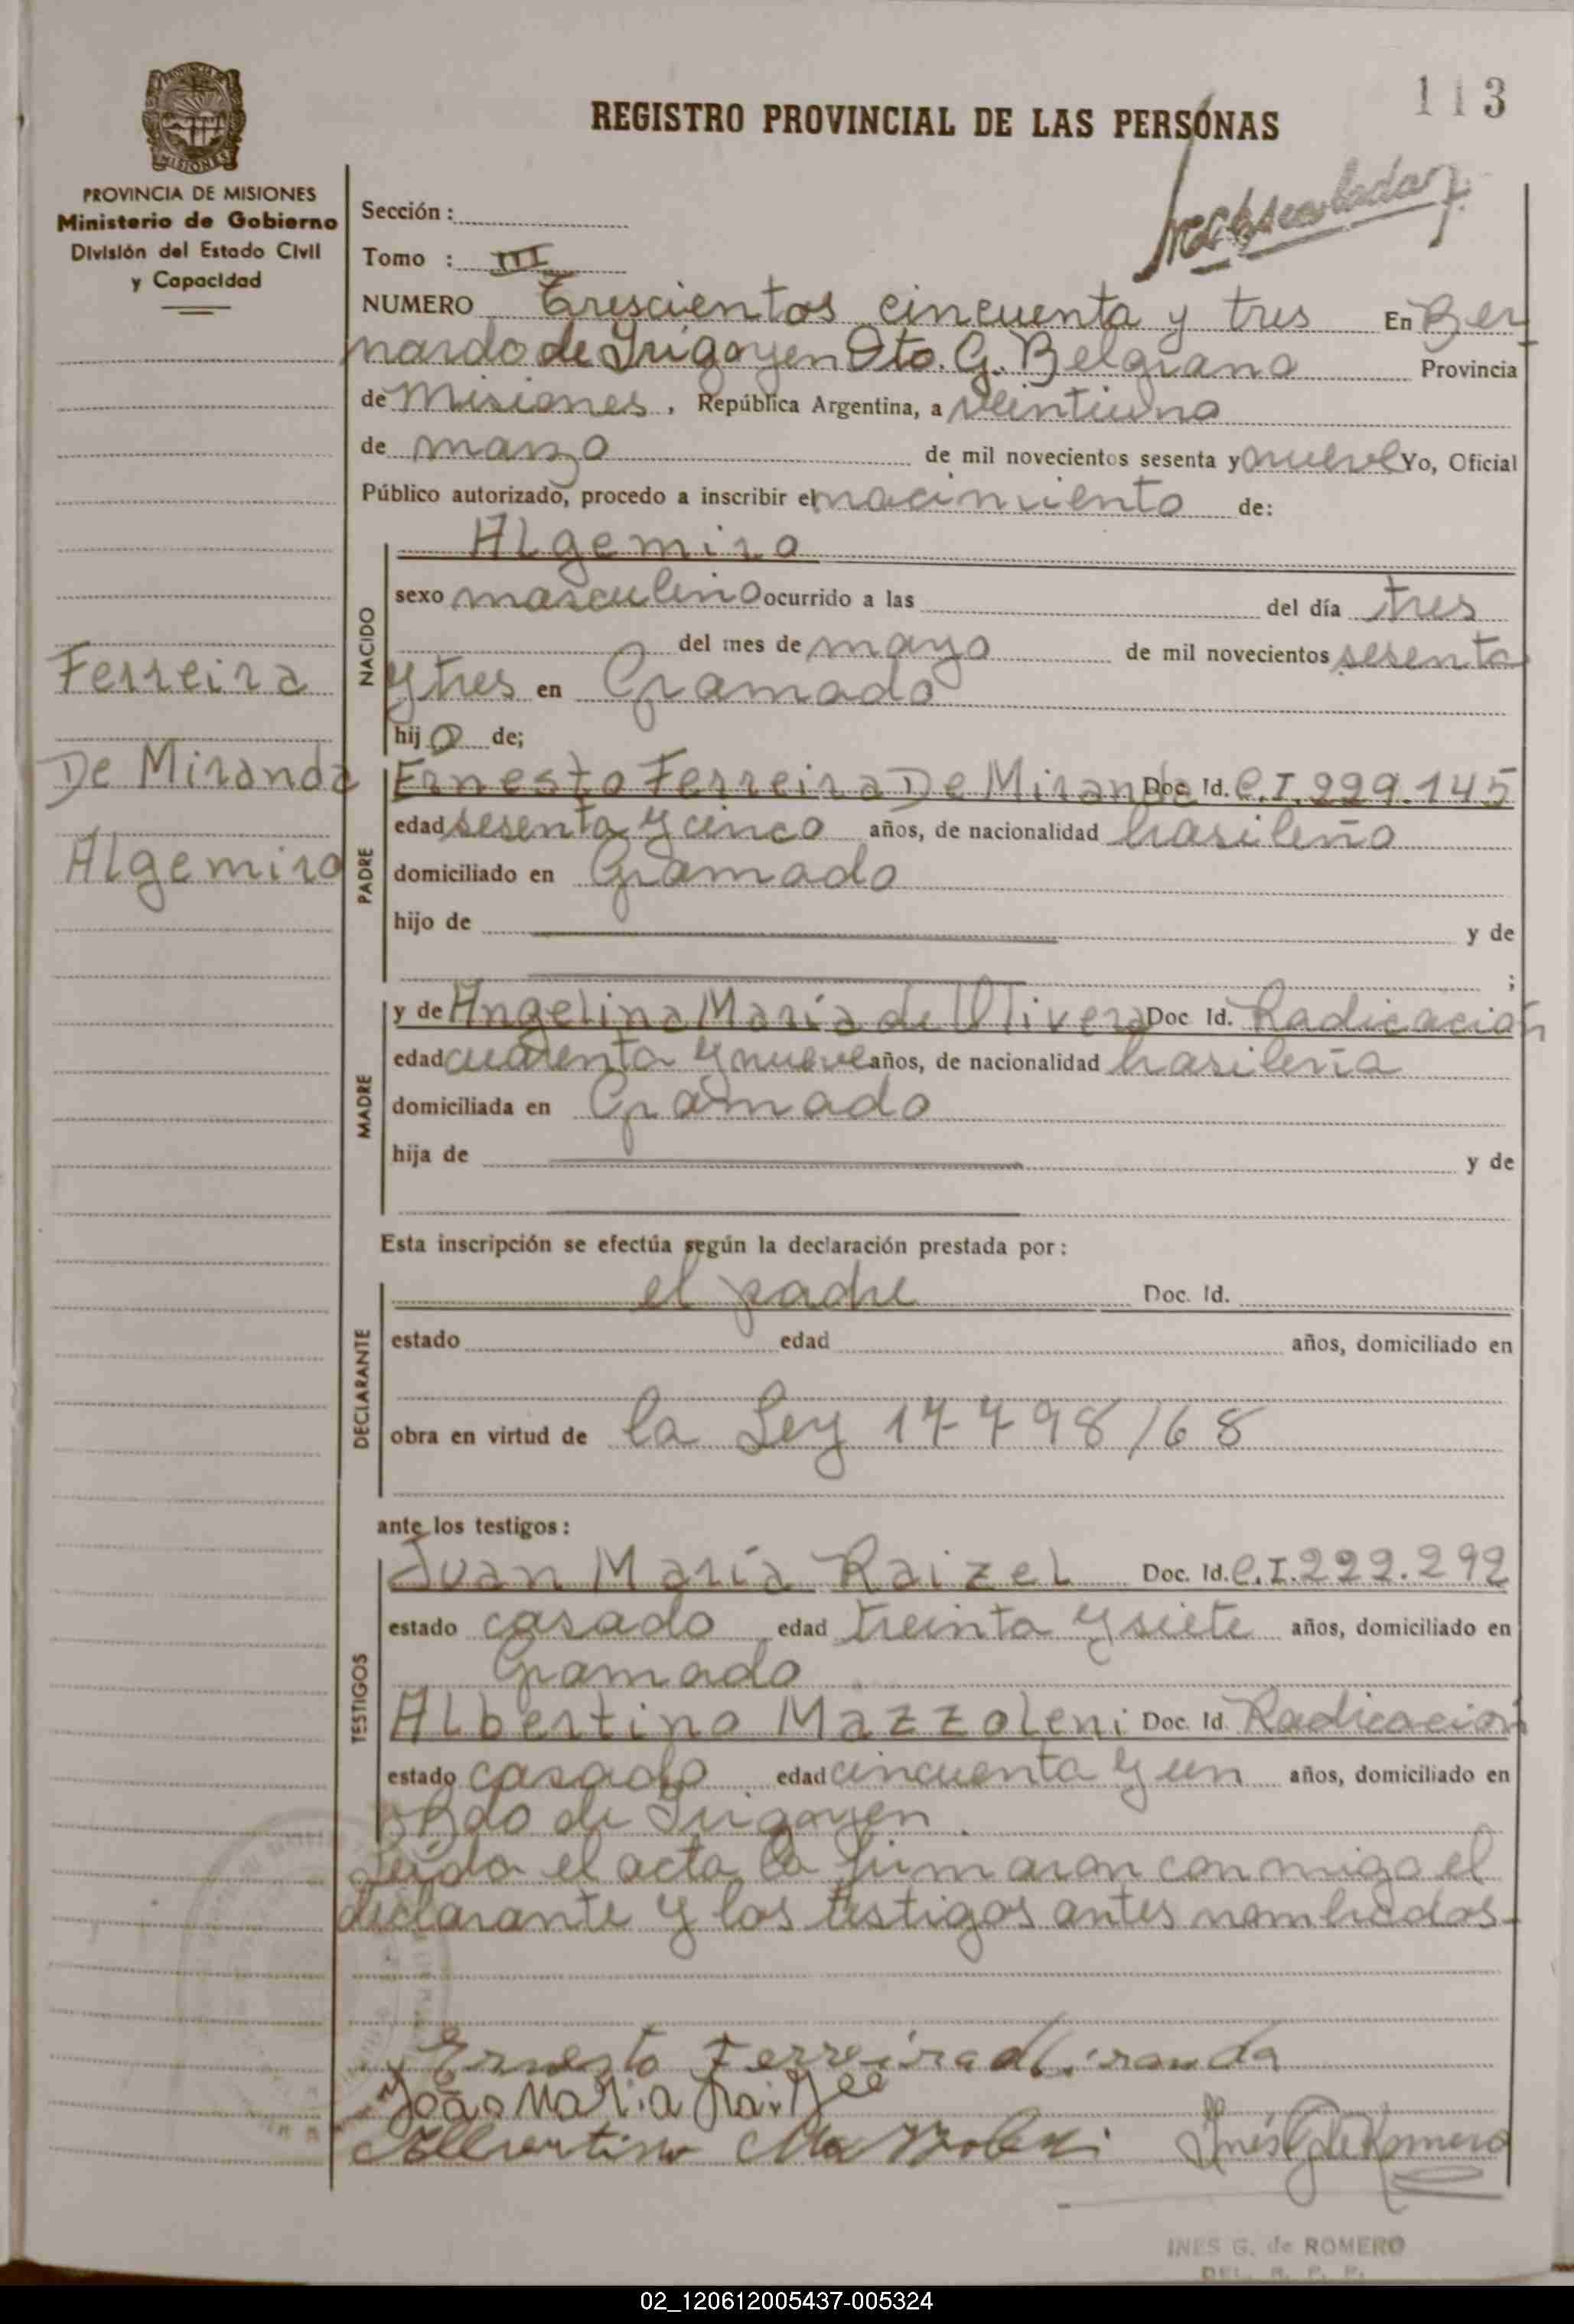 113
REGISTRO PROVINCIAL DE LAS PERSONAS
PROVINCIA DE MISIONES
MISIONES
PROVINCIA DE MISIONES
Ministerio de Gobierno
División del Estado Civil
y Capacidad
Sección :
Tomo : III
NUMERO Trescientos cincuenta y tres En Ber
nardo de Irigoyen Dto. G. Belgrano Provincia
de Misiones, República Argentina, a veintiuno
de marzo de mil novecientos sesenta y nueve Yo, Oficial
Público autorizado, procedo a inscribir el nacimiento de:
NACIDO
Algemiro
sexo masculino ocurrido a las del día tres
del mes de mayo de mil novecientos sesenta
y tres en Gramado
hijo de;
Ferreira
De Miranda
Algemiro
PADRE
Ernesto Ferreira De Miranda Doc. Id. C.I. 229.145
edad sesenta y cinco años, de nacionalidad brasileño
domiciliado en Gramado
hijo de y de
;
MADRE
y de Angelina María de Olivera Doc Id. Radicación
edad cuarenta y nueve años, de nacionalidad brasileña
domiciliada en Gramado
hija de y de
Esta inscripción se efectúa según la declaración prestada por:
DECLARANTE
el padre Doc. Id.
estado edad años, domiciliado en
obra en virtud de la Ley 17798/68
ante los testigos:
TESTIGOS
Juan María Raizel Doc. Id. C.I. 222.292
estado casado edad treinta y siete años, domiciliado en
Gramado
Albertino Mazzoleni Doc. Id. Radicación
estado casado edad cincuenta y un años, domiciliado en
Bdo de Irigoyen.
Leída el acta la firmaron conmigo el
declarante y los testigos antes nombrados-
Ernesto Ferreira de Miranda
João Maria
Albertino Mazzoleni Inés G de Romero
INES G. de ROMERO
DEL. R. P. P.
02_120612005437-005324